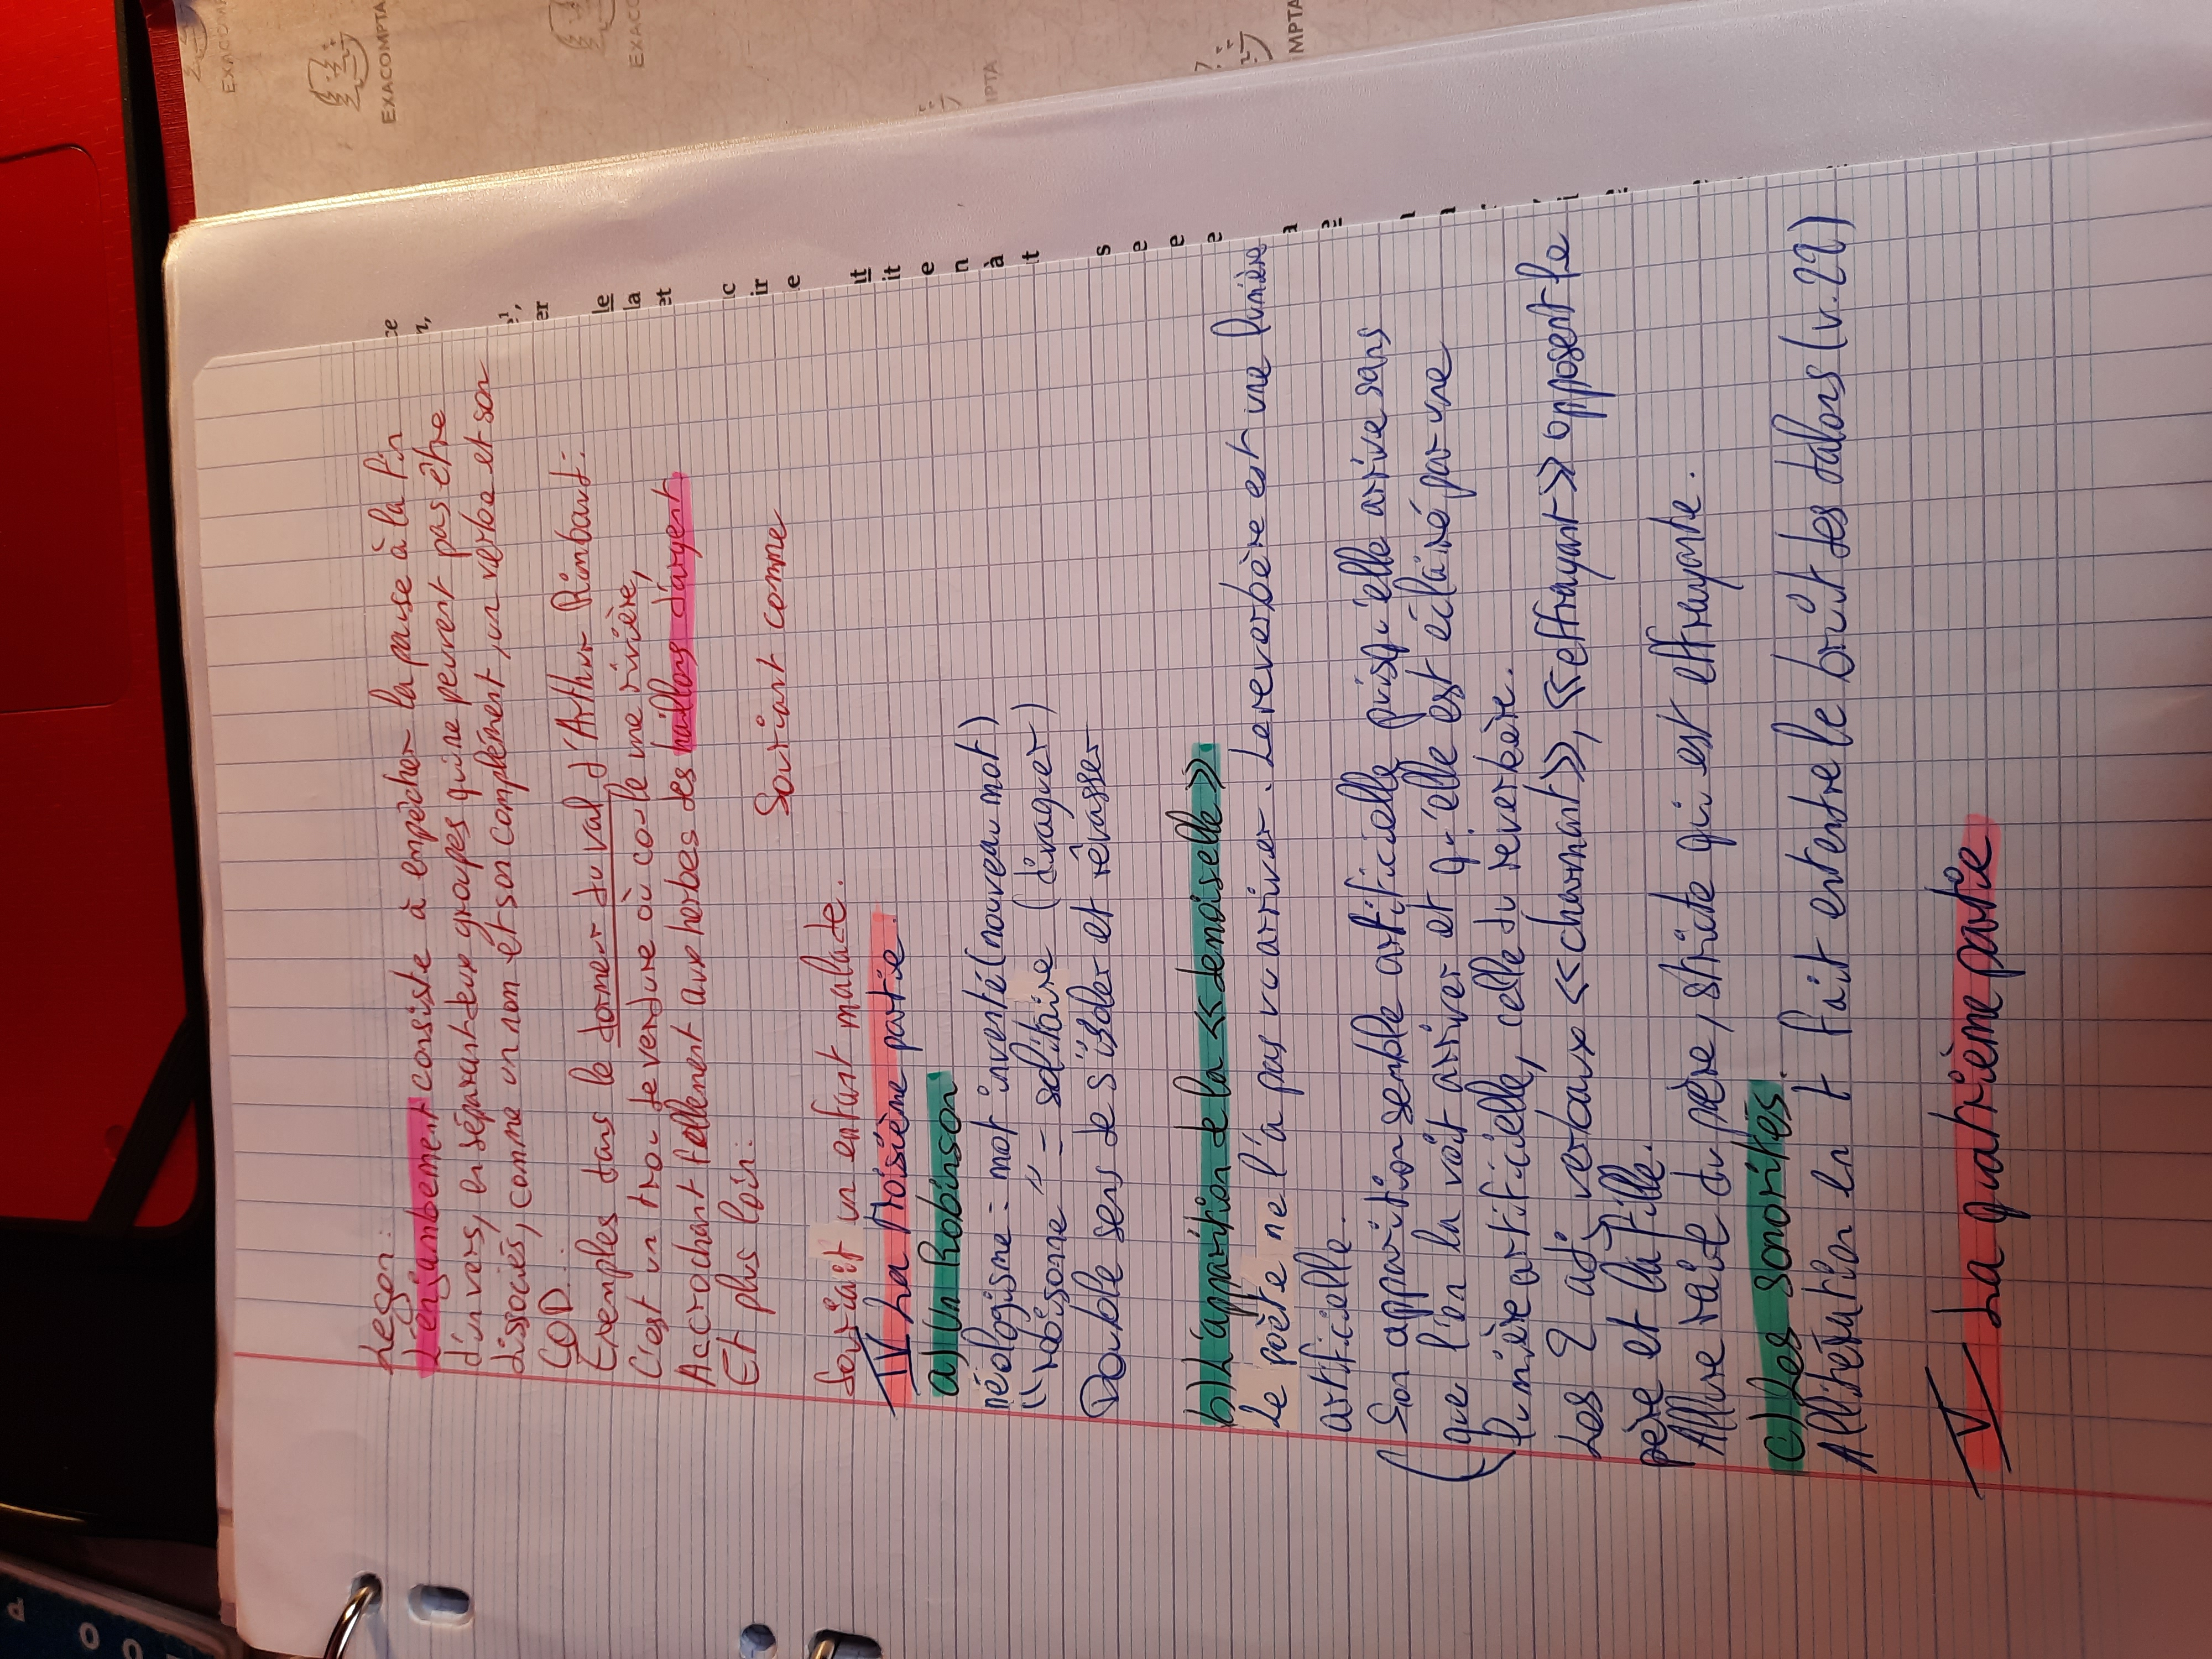 Leçon :
L'enjambement consiste à empêcher la pause à la fin
d'un vers, en séparant deux groupes qui ne peuvent pas être
dissociés, comme un nom et son complément, un verbe et son
COD...
Exemples dans le dormeur du val d'Arthur Rimbaud :
C'est un trou de verdure où coule une rivière,
Accrochant follement aux herbes des haillons d'argent
Et plus loin :
Souriant comme
Souriait un enfant malade.
IV La troisième partie.
a) Un Robinson
néologisme = mot inventé (nouveau mot)
"robisonne" = solitaire (divaguer)
Double sens de s'isoler et rêvasser
b) L'apparition de la « demoiselle ».
Le poète ne l'a pas vu arriver. Le reverbère est une lumière
artificielle.
Son apparition semble artificielle puisqu'elle arrive sans
que l'on la voit arriver et qu'elle est éclairé par une
lumière artificielle, celle du reverbère.
Les 2 adj verbaux « charmant », « effrayant » opposent le
père et la fille.
Allure raide du père, stricte qui est effrayante.
c) Les sonorités.
Allitération en t fait entendre le bruit des talons (v.22)
V La quatrième partie
EXACOMPTA
EXACOMPTA